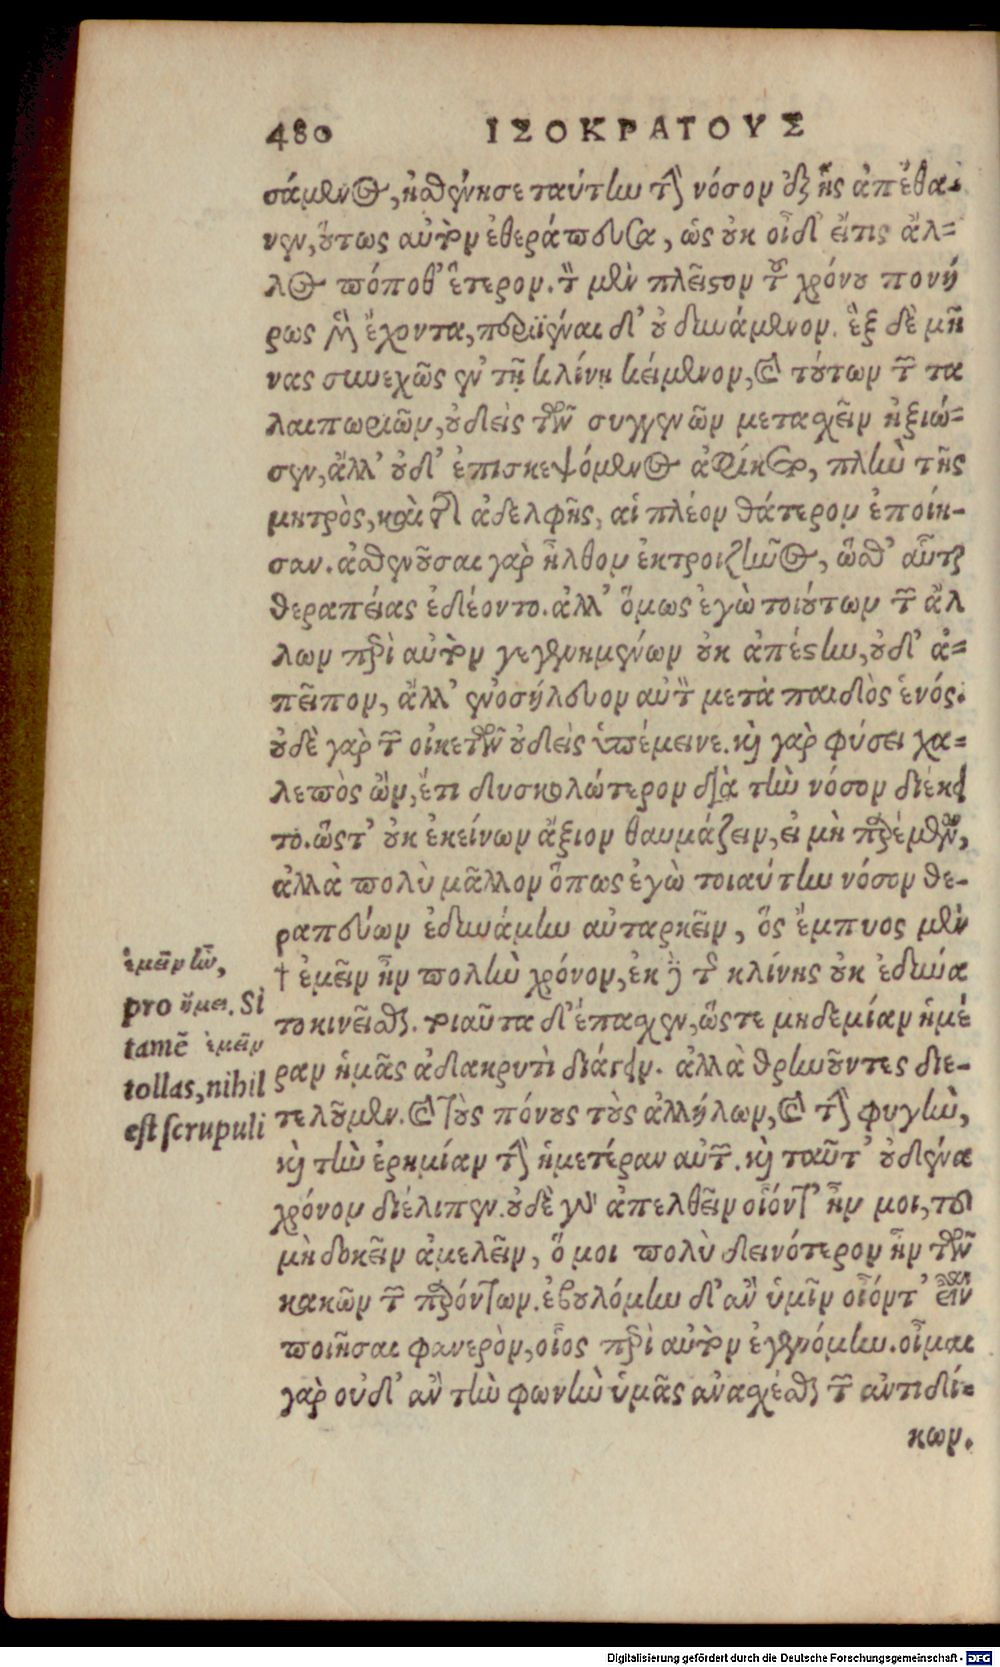 480 ΙΣΟΚΡΑΤΟΥΣ
σάμενος, ἠσθένησε ταύτην τὴν νόσον ἐξ ἧς ἀπέθα-
νεν, οὕτως αὐτὸν ἐθεράπευσα, ὡς οὐκ οἶδ' εἴτις ἄλ-
λος πόποθ' ἕτερον. τὸν μὲν πλεῖστον τοῦ χρόνου πονή
ρως μὲν ἔχοντα, περιϊέναι δ' οὐ δυνάμενον. ἓξ δὲ μῆ
νας συνεχῶς ἐν τῇ κλίνῃ κείμενον, καὶ τούτων τῶν τα
λαιπωριῶν, οὐδεὶς τῶν συγγενῶν μεταχεῖν ἠξίω-
σεν, ἀλλ' οὐδ' ἐπισκεψόμενος ἀφίκετο, πλὴν τῆς
μητρὸς, καὶ τῆς ἀδελφῆς, αἱ πλέον θάτερον ἐποίη-
σαν. ἀσθενοῦσαι γὰρ ἦλθον ἐκ τροιζῆνος, ὥσθ' αὗται
θεραπείας ἐδέοντο. ἀλλ' ὅμως ἐγὼ τοιούτων τῶν ἄλ
λων περὶ αὐτὸν γεγενημένων οὐκ ἀπέστην, οὐδ' ἀ-
πεῖπον, ἀλλ' ἐνοσήλευον αὐτὸν μετὰ παιδὸς ἑνός.
οὐδὲ γὰρ τῶν οἰκετῶν οὐδεὶς ὑπέμεινε. καὶ γὰρ φύσει χα-
λεπὸς ὢν, ἔτι δυσκολώτερον διὰ τὴν νόσον διέκει
το. ὥστ' οὐκ ἐκείνων ἄξιον θαυμάζειν, εἰ μὴ παρέμενον,
ἀλλὰ πολὺ μᾶλλον ὅπως ἐγὼ τοιαύτην νόσον θε-
ραπεύων ἐδυνάμην αὐταρκεῖν, ὃς ἔμπυος μὲν
† ἐμεῖν ἦν πολὺν χρόνον, ἐκ δὲ τῆς κλίνης οὐκ ἐδύνα
το κινεῖσθαι. τοιαῦτα δ' ἔπασχεν, ὥστε μηδεμίαν ἡμέ
ραν ἡμᾶς ἀδακρυτὶ διάγειν. ἀλλὰ θρηνοῦντες διε-
τελοῦμεν. καὶ τοὺς πόνους τοὺς ἀλλήλων, καὶ τὴν φυγὴν,
καὶ τὴν ἐρημίαν τὴν ἡμετέραν αὐτῶν. καὶ ταῦτ' οὐδένα
χρόνον διέλιπεν. οὐδὲ γὰρ ἀπελθεῖν οἷόντ' ἦν μοι, τοῦ
μὴ δοκεῖν ἀμελεῖν, ὅ μοι πολὺ δεινότερον ἦν τῶν
κακῶν τῶν παρόντων. ἐβουλόμην δ' ἂν ὑμῖν οἷόντ' εἶναι
ποιῆσαι φανερὸν, οἷος περὶ αὐτὸν ἐγενόμην. οἶμαι
γὰρ οὐδ' ἂν τὴν φωνὴν ὑμᾶς ἀνασχέσθαι τῶν ἀντιδί-
κων.
ἐμεῖν ἦν,
pro ἤμει. Si
tamē ἐμεῖν
tollas, nihil
est scrupuli
Digitalisierung gefördert durch die Deutsche Forschungsgemeinschaft - DFG